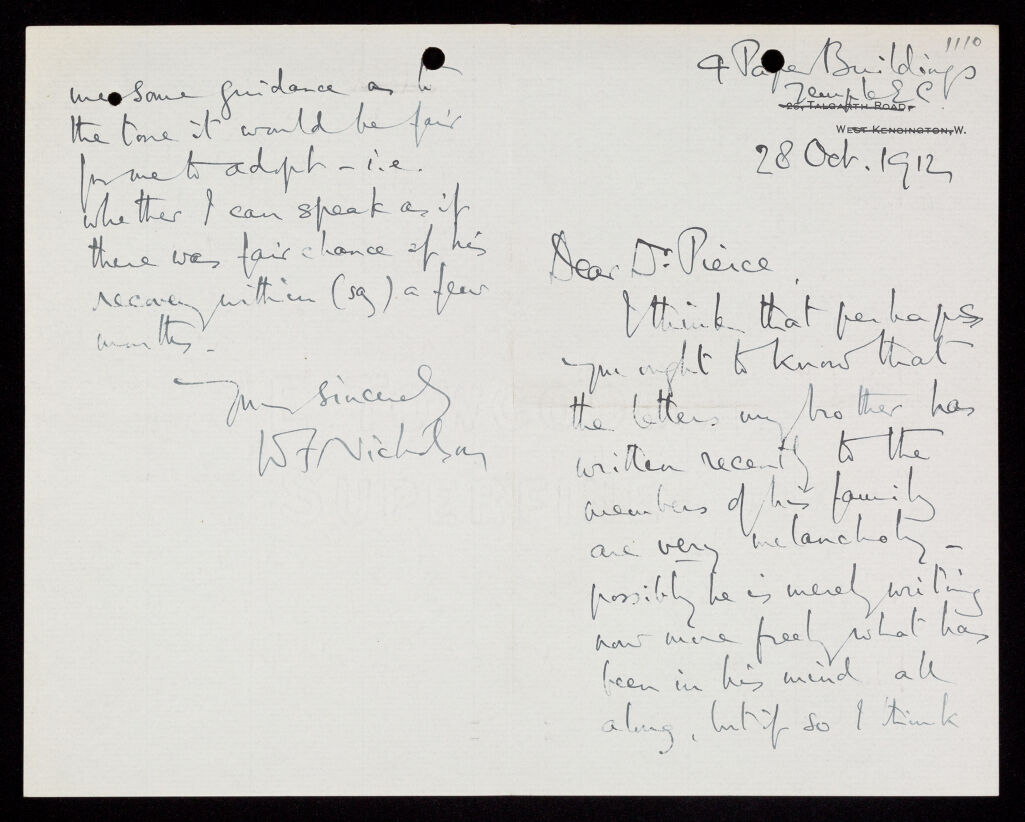 1110
4 Paper Buildings
Temple E.C.
26, TALGARTH ROAD,
WEST KENSINGTON, W.
28 Oct. 1912
Dear Dr. Pierce,
I think that perhaps
you ought to know that
the letters my brother has
written recently to the
members of his family
are very melancholy –
possibly he is merely writing
now more freely what has
been in his mind all
along, but if so I think
me some guidance as to
the tone it would be fair
for me to adopt – i.e.
whether I can speak as if
there was fair chance of his
recovery within (say) a few
months.
Yours sincerely
W F Nicholson